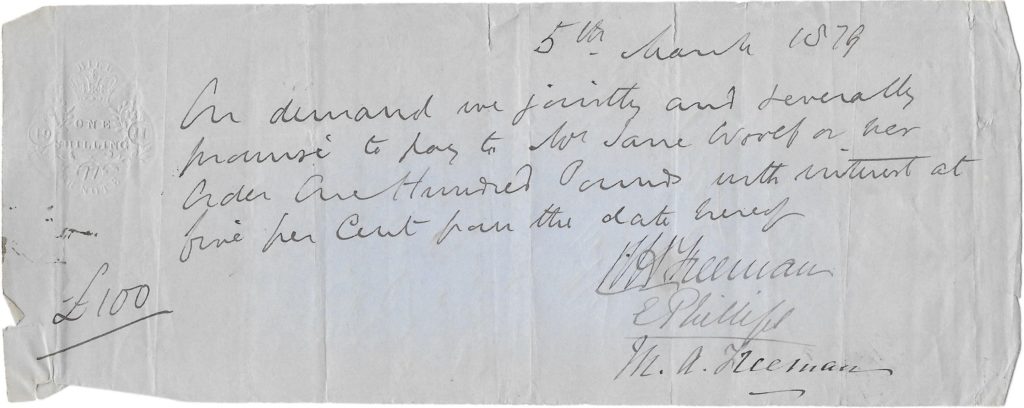 5th March 1879
On demand we jointly and severally
promise to pay to Mrs Jane Woolf or her
order One Hundred Pounds with interest at
five per Cent from the date hereof
£100
Freeman
E Phillips
M. A. Freeman
ONE
SHILLING